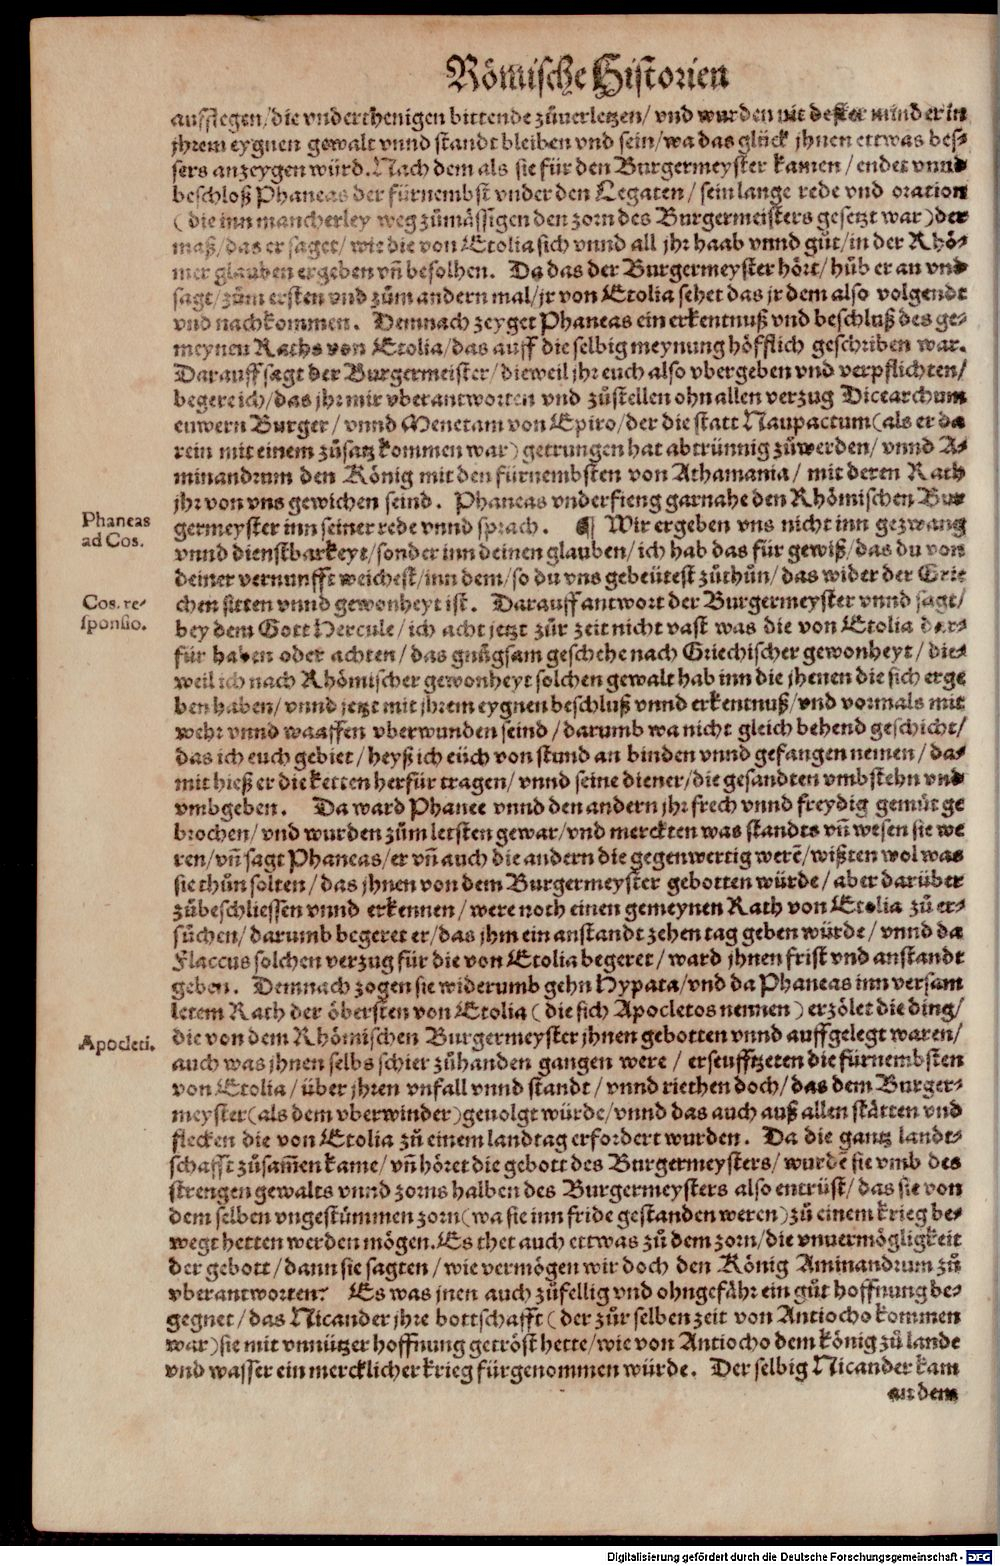 Römische Historien
aufflegen/die vnderthenigen bittende zůuerletzen/ vnd wurden nit dester minder in
jhrem eygnen gewalt vnnd standt bleiben vnd sein/wa das glück jhnen ettwas bes-
sers anzeygen würd. Nach dem als sie für den Burgermeyster kamen/ endet vnnd
beschloß Phaneas der fürnembst vnder den Legaten/ sein lange rede vnd oration
(die inn mancherley weg zůmässigen den zorn des Burgermeisters gesetzt war) der
maß/das er saget/ wir die von Etolia sich vnnd all jhr haab vnnd gůt/in der Rhö-
mer glauben ergeben vñ befolhen. Da das der Burgermeyster hört/ hůb er an vnd
sagt/zům ersten vnd zům andern mal/jr von Etolia sehet das jr dem also volgendt
vnd nachkommen. Demnach zeyget Phaneas ein erkentnuß vnd beschluß des ge-
meynen Raths von Etolia/das auff die selbig meynung höfflich geschriben war.
Darauff sagt der Burgermeister/dieweil jhr euch also vbergeben vnd verpflichten/
begere ich/das jhr mir vberantworten vnd zůstellen ohn allen verzug Dicearchum
euwern Burger/ vnnd Menetam von Epiro/der die statt Naupactum(als er da
rein mit einem zůsatz kommen war) getrungen hat abtrünnig zůwerden/ vnnd A-
minandrum den König mit den fürnembsten von Athamania/ mit deren Rath
jhr von vns gewichen seind. Phaneas vnderfieng garnahe den Rhömischen Bur
germeyster inn seiner rede vnnd sprach. ¶ Wir ergeben vns nicht inn gezwang
vnnd dienstbarkeyt/sonder inn deinen glauben/ich hab das für gewiß/das du von
deiner vernunfft weichest/inn dem/so du vns gebeütest zůthůn/das wider der Grie
chen sitten vnnd gewonheyt ist. Darauff antwort der Burgermeyster vnnd sagt/
bey dem Gott Hercule/ich acht jetzt zůr zeit nicht vast was die von Etolia dar-
für haben oder achten/das gnůgsam geschehe nach Griechischer gewonheyt/die-
weil ich nach Rhömischer gewonheyt solchen gewalt hab inn die jhenen die sich erge
ben haben/ vnnd jetzt mit jhrem eygnen beschluß vnnd erkentnuß/vnd vormals mit
wehr vnnd waaffen vberwunden seind/ darumb wa nicht gleich behend geschicht/
das ich euch gebiet/ heyß ich eüch von stund an binden vnnd gefangen nemen/ da-
mit hieß er die ketten herfür tragen/ vnnd seine diener/die gesandten vmbstehn vnd
vmbgeben. Da ward Phanee vnnd den andern jhr frech vnnd freydig gemüt ge
brochen/ vnd wurden zům letsten gewar/vnd merckten was standts vñ wesen sie we
ren/vñ sagt Phaneas/er vñ auch die andern die gegenwertig werē/wißten wol was
sie thůn solten/das jhnen von dem Burgermeyster gebotten würde/aber darüber
zůbeschliessen vnnd erkennen/were noch einen gemeynen Rath von Etolia zů er-
sůchen/darumb begeret er/das jhm ein anstandt zehen tag geben würde/ vnnd da
Flaccus solchen verzug für die von Etolia begeret/ward jhnen frist vnd anstandt
geben. Demnach zogen sie widerumb gehn Hypata/vnd da Phaneas inn versam
letem Rath der öbersten von Etolia (die sich Apocletos nennen) erzölet die ding/
die von dem Rhömischen Burgermeyster jhnen gebotten vnnd auffgelegt waren/
auch was jhnen selbs schier zůhanden gangen were/ erseufftzeten die fürnembsten
von Etolia/über jhren vnfall vnnd standt/vnnd riethen doch/das dem Burger-
meyster(als dem vberwinder)geuolgt würde/vnnd das auch auß allen stätten vnd
flecken die von Etolia zů einem landtag erfordert wurden. Da die gantz landt-
schafft zůsam̄en kame/vñ höret die gebott des Burgermeysters/wurdē sie vmb des
strengen gewalts vnnd zorns halben des Burgermeysters also entrüst/das sie von
dem selben vngestümmen zorn(wa sie inn fride gestanden weren)zů einem krieg be-
wegt hetten werden mögen. Es thet auch ettwas zů dem zorn/die vnuermögligkeit
der gebott/dann sie sagten/wie vermögen wir doch den König Aminandrum zů
vberantworten? Es was jnen auch zůfellig vnd ohngefähr ein gůt hoffnung be-
gegnet/das Nicander jhre bottschafft(der zůr selben zeit von Antiocho kommen
war)sie mit vnnützer hoffnung getröst hette/wie von Antiocho dem könig zů lande
vnd wasser ein mercklicher krieg fürgenommen würde. Der selbig Nicander kam
an dem
Phaneas
ad Cos.
Cos. re-
sponsio.
Apocleti.
Digitalisierung gefördert durch die Deutsche Forschungsgemeinschaft - DFG